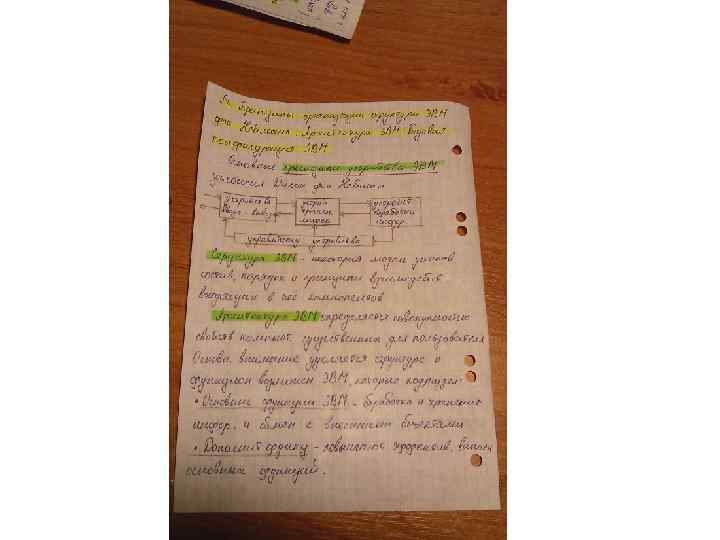 Принципы организации структуры ЭВМ
фон Неймана. Архитектура ЭВМ. Базовая
конфигурация ЭВМ
Основные принципы устройства ЭВМ
фон Нейман
устройство
ввода-вывод
хранен.
инфор.
устройст
обработки
инфор.
управляющее устройство
Структура ЭВМ - некоторая модель устанав
состав, порядок и принципы взаимодейств
входящих в неё компонентов
Архитектура ЭВМ определяется совокупностью
свойств существенных для пользователя
Основн. внимание уделяется структуре и
функцион возможност ЭВМ, которые подраздел-
• Основные функции ЭВМ - обработка и хранение
инфор. и обмен с внешними объектами
• Дополнит функц - повышение эффектив. выполн
основных функций.